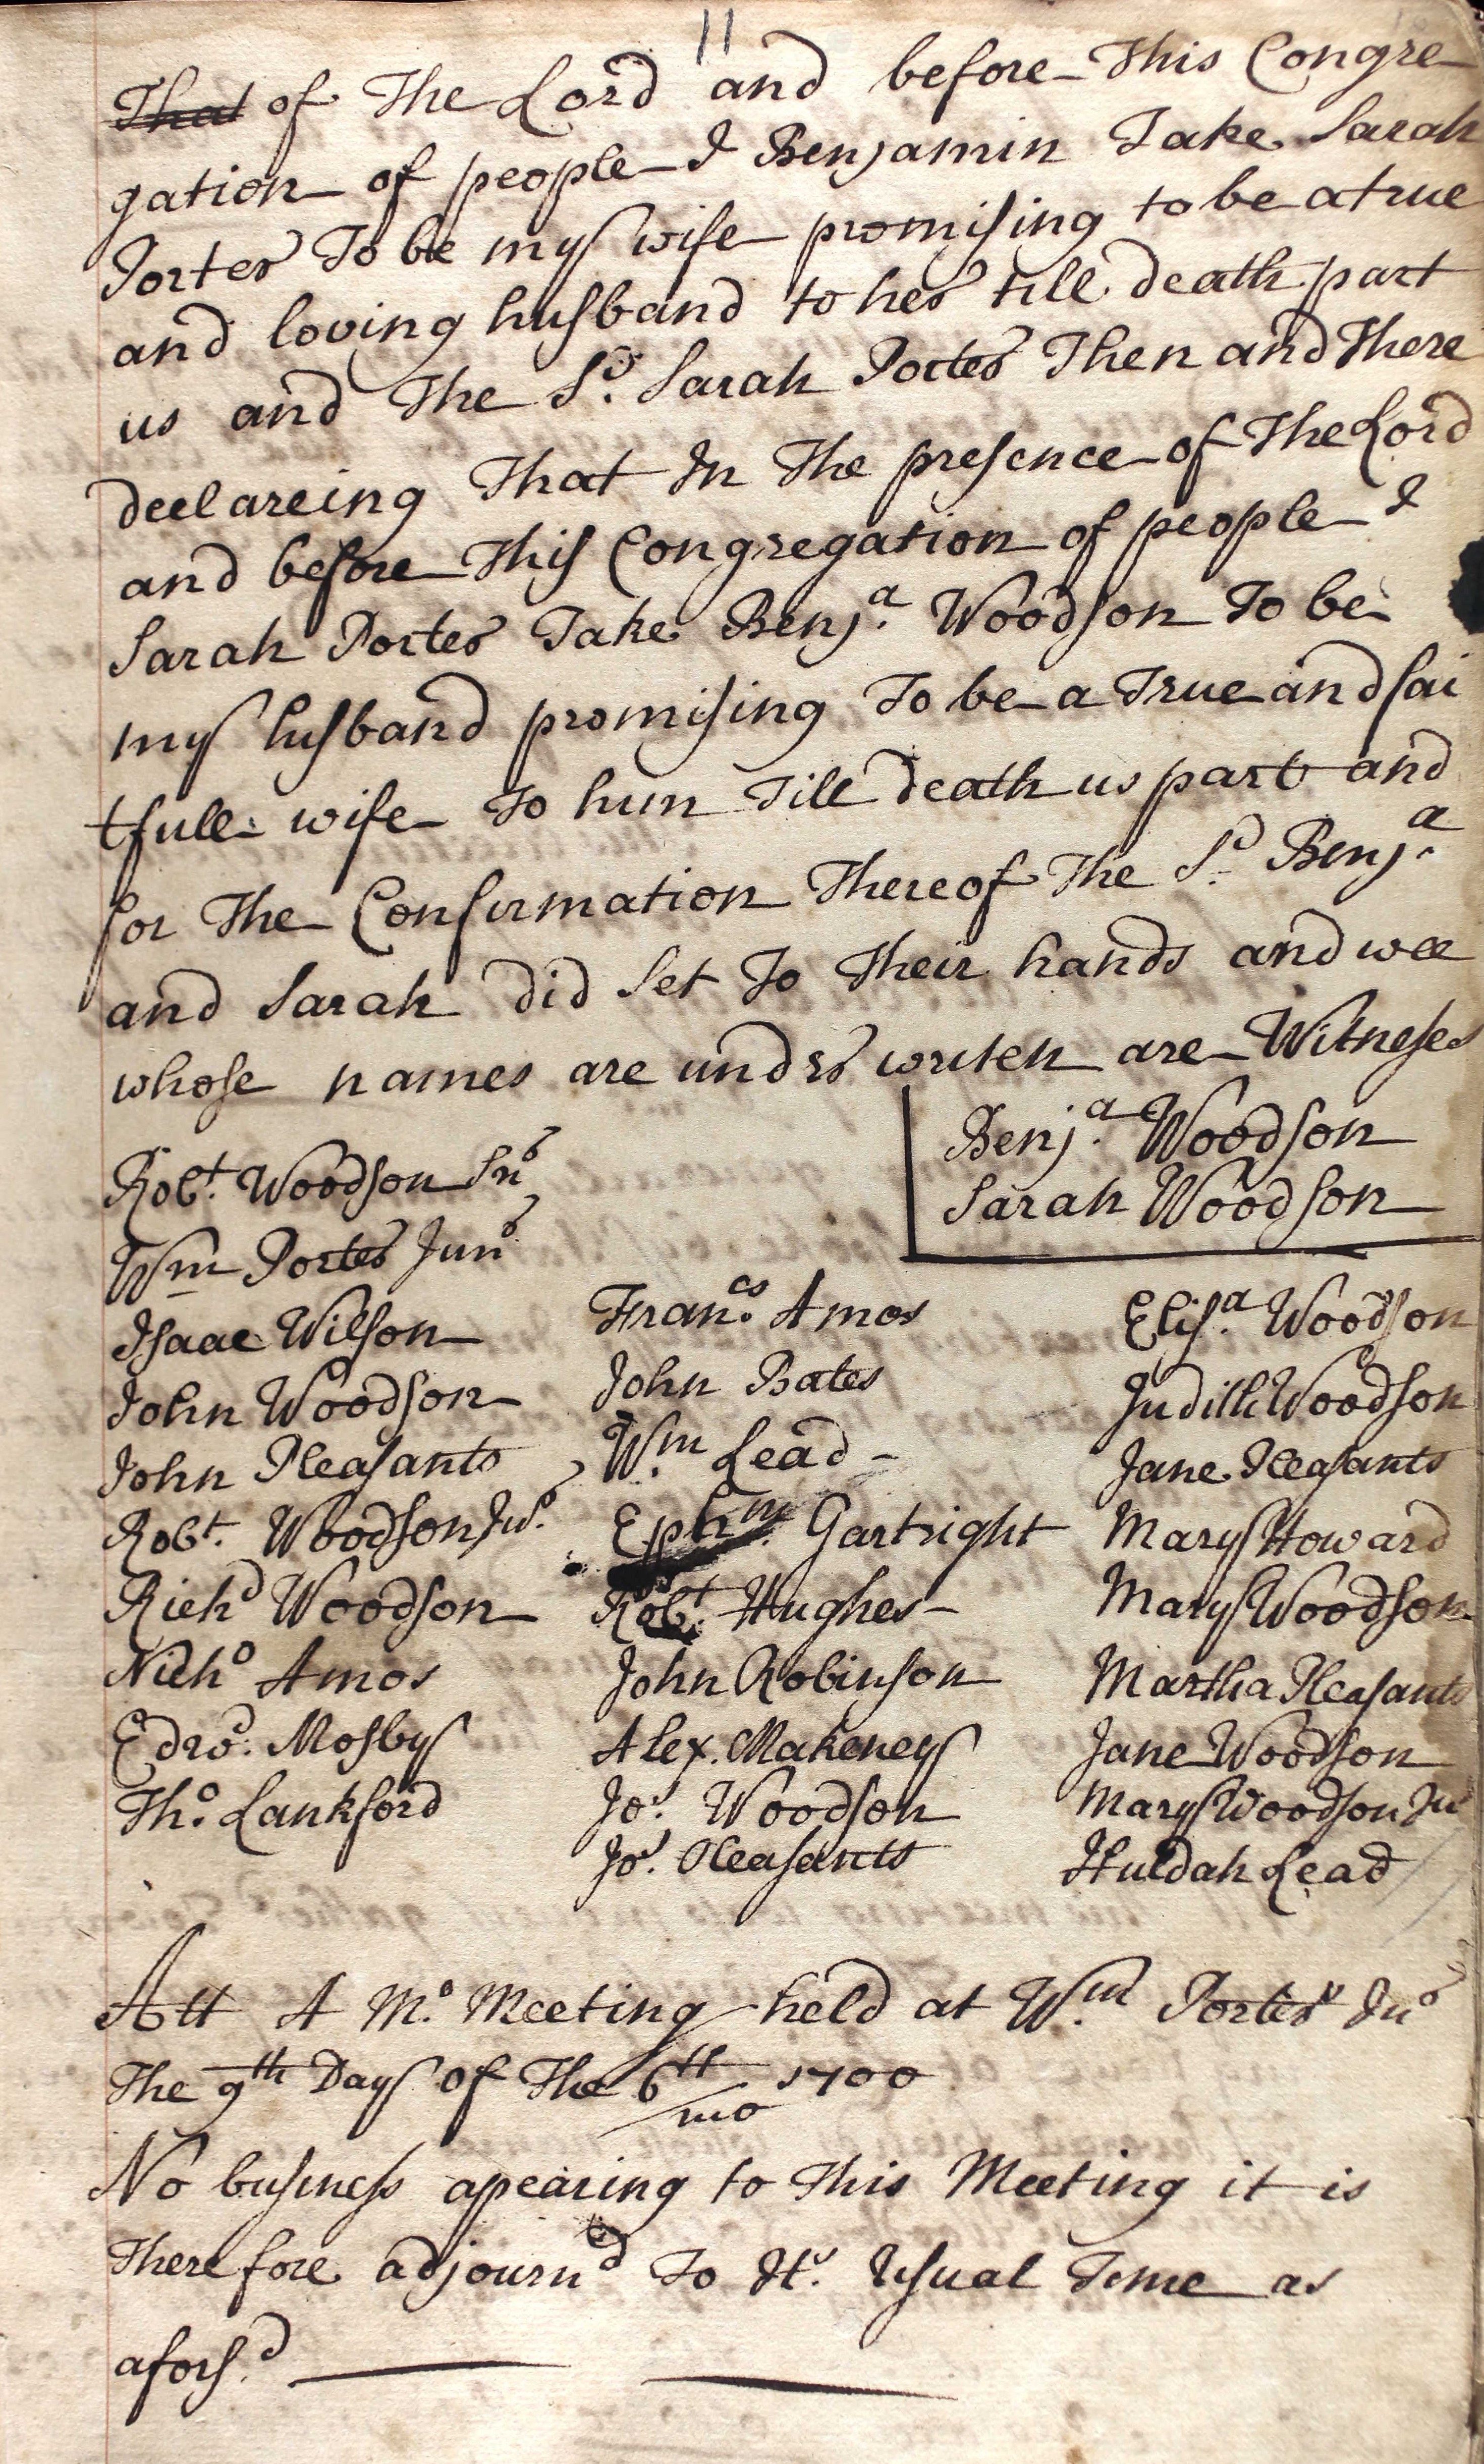 11
That of The Lord and before This Congre
gation of people I Benjamin Take Sarah
Porter To be my wife promising to be a true
and loving husband to her till death part
us and The Sd. Sarah Porter Then and There
declareing That In The presence of The Lord
and before This Congregation of people I
Sarah Porter Take Benja. Woodson To be
my husband promising To be a True and fai
tfull wife To him Till death us part and
for The Confirmation Thereof The Sd. Benja.
and Sarah did Set To Their hands and wee
whose names are under writen are Witneses
Benja. Woodson
Sarah Woodson
Robt. Woodson Snr
Wm Porter Junr
Isaac Wilson
John Woodson
John Pleasants
Robt. Woodson Jur.
Richd Woodson
Nicho Amos
Edwd. Mosby
Tho. Lankford
Francs. Amos
John Bates
Wm. Lead
Ephm. Gartright
Robt. Hughes
John Robinson
Alex. Makeney
Jos. Woodson
Jos. Pleasants
Elisa. Woodson
Judith Woodson
Jane Pleasants
Mary Howard
Mary Woodson
Martha Pleasants
Jane Woodson
Mary Woodson Jur
Huldah Lead
Att A Mo. Meeting held at Wm. Porters Jnr
The 9th Day of The 6th mo 1700
No business apearing to This Meeting it is
Therefore adjournd To Its. Usual Time as
aforsd.